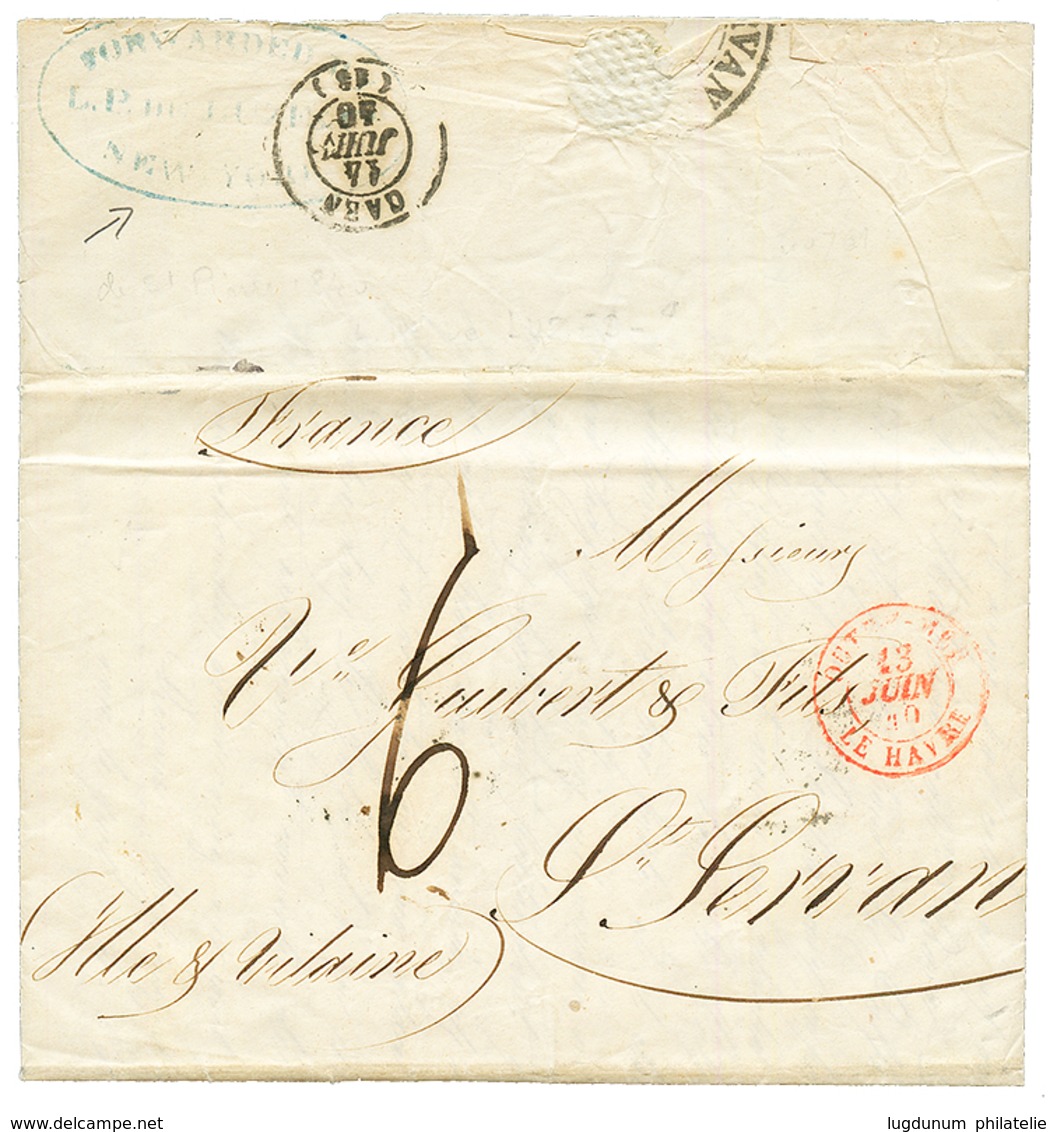 FORWARDED
L. P. de LUZE
NEW YORK
(13)
40
JUIN
14
CAEN
VAN
France
Messieurs
Vve Guibert & Fils
6
OUTRE-MER
13
JUIN
40
LE HAVRE
St. Servan
Ille & Vilaine
lugdunum philatelie